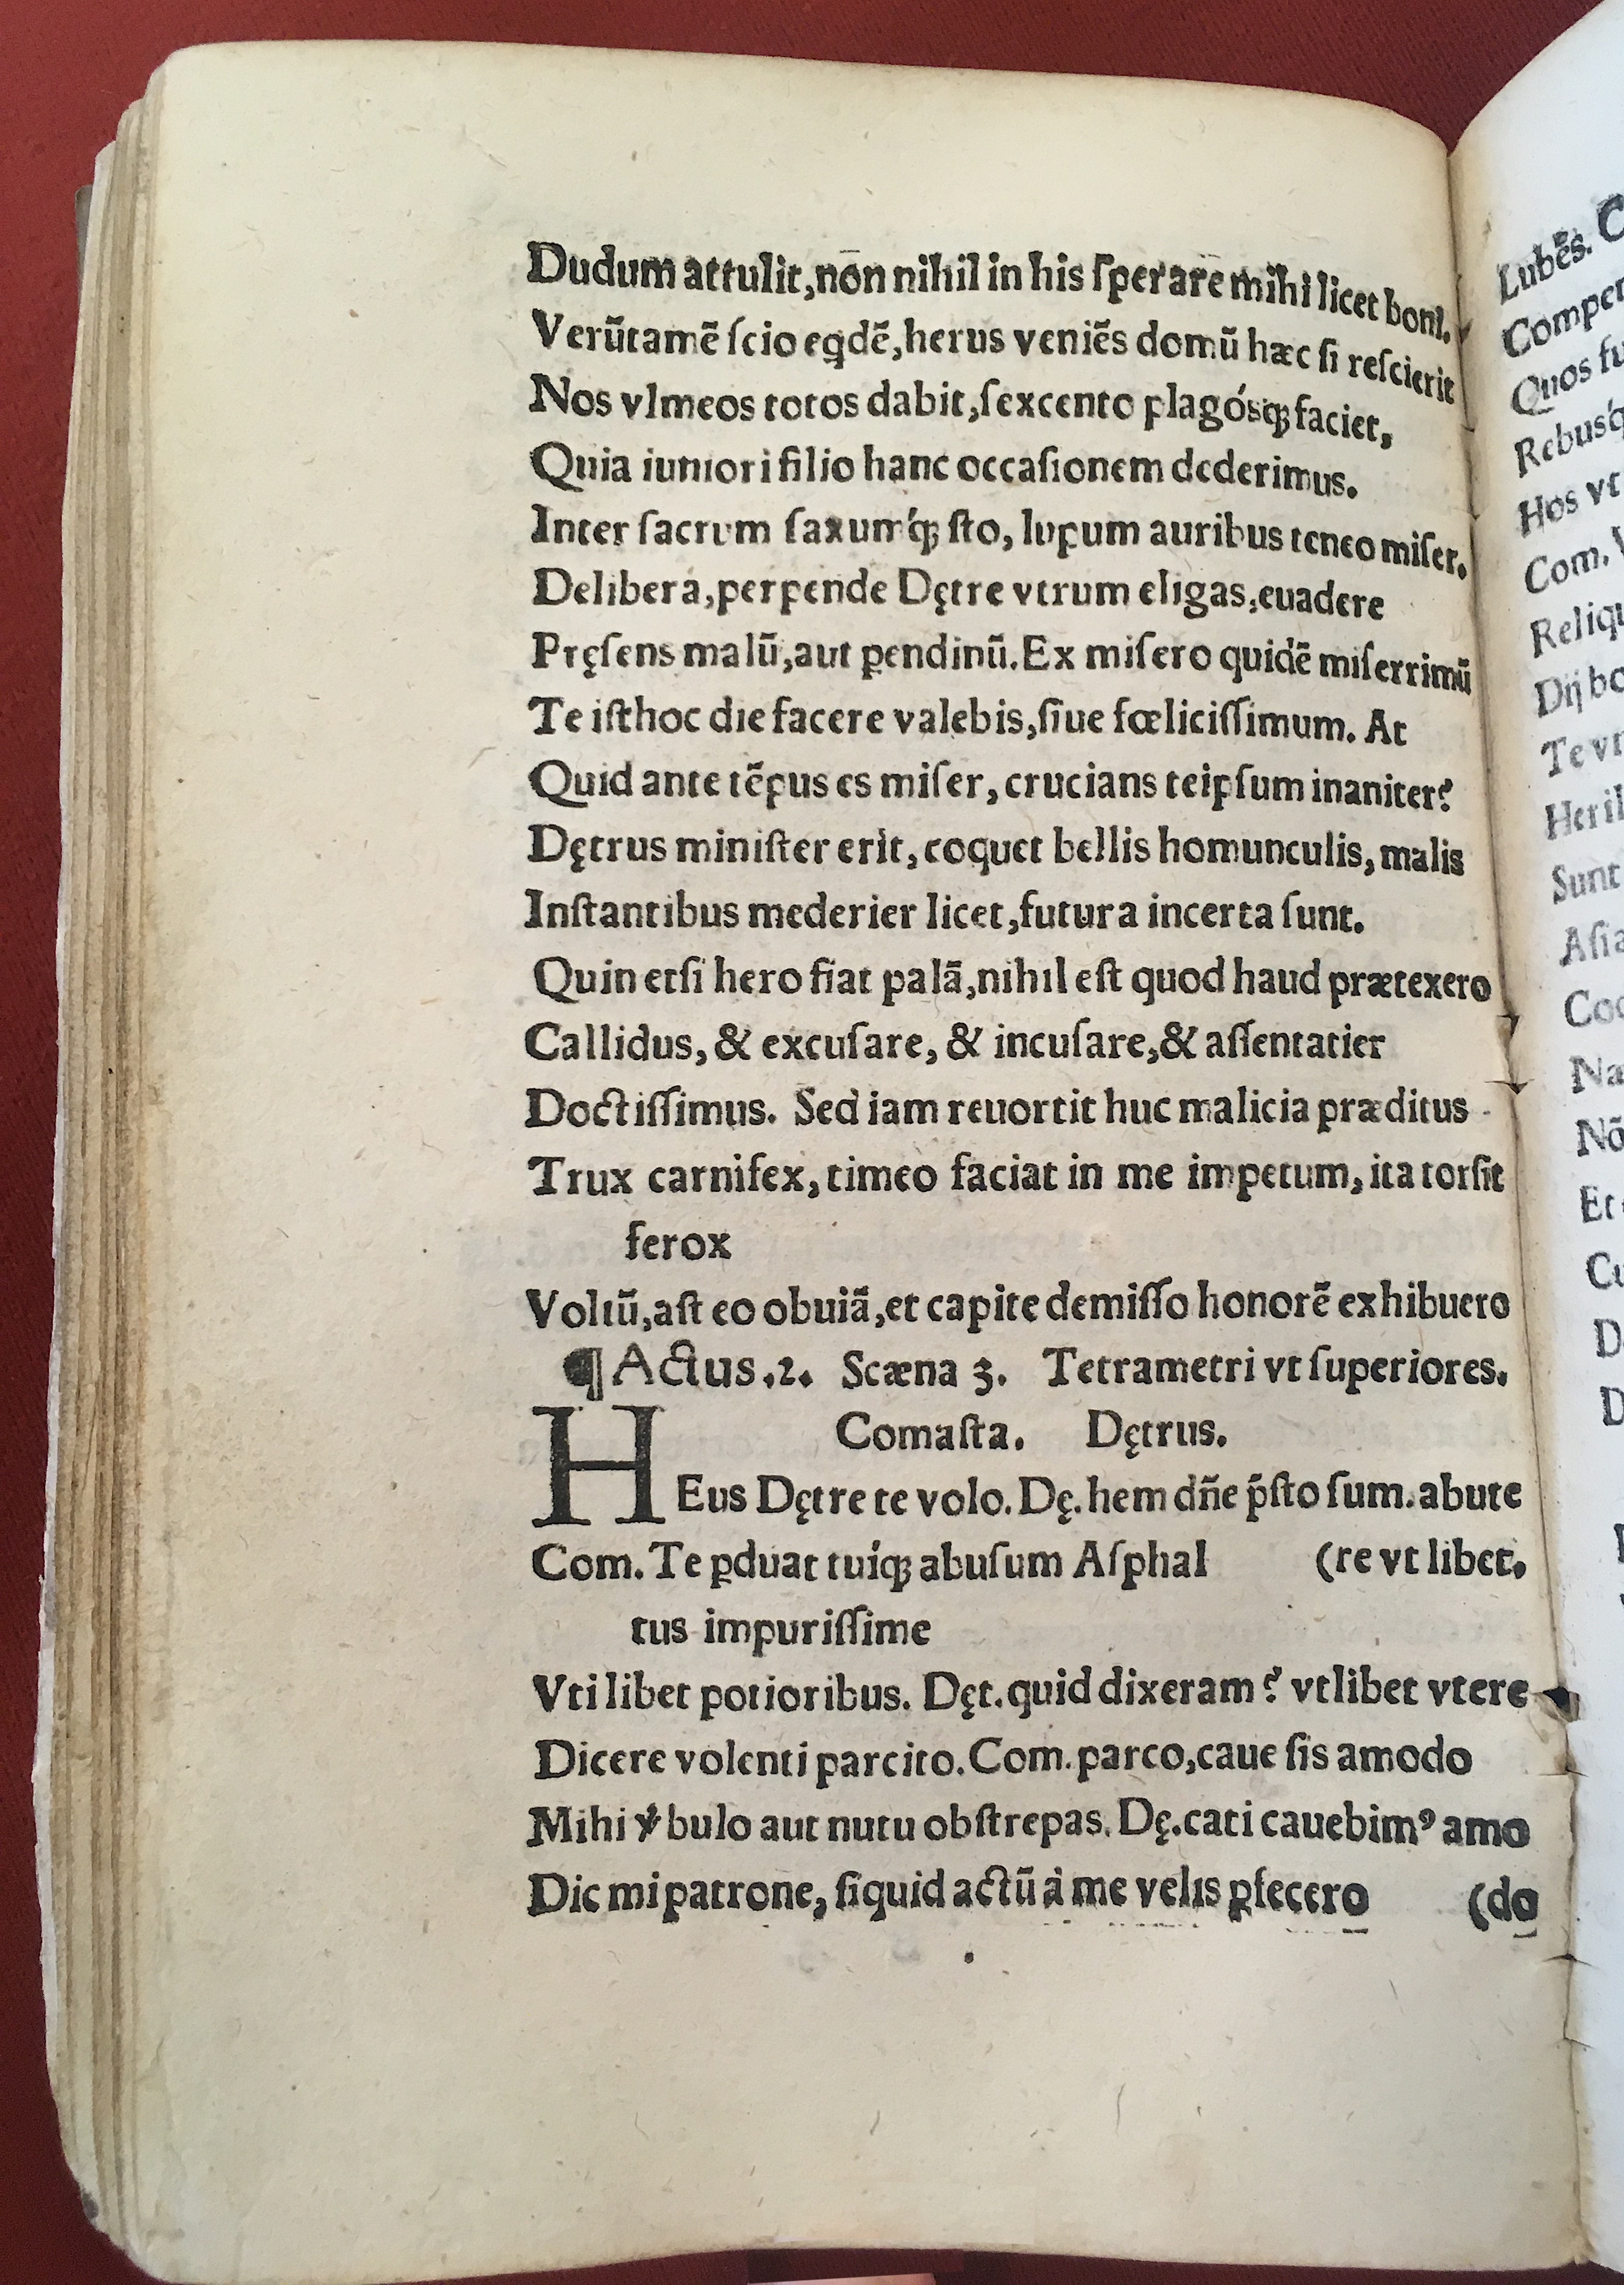 Dudum attulit,non nihil in his ſperare mihi licet boni.
Verũtamẽ ſcio eq̃dẽ,herus veniẽs domũ hæc ſi reſcierit
Nos vlmeos totos dabit,ſexcento plagósq́ꝫ faciet,
Quia iuniori filio hanc occaſionem dederimus.
Inter ſacrum ſaxumq́ꝫ ſto, lupum auribus teneo miſer.
Delibera,perpende Dętre vtrum eligas,euadere
Pręſens malũ,aut ꝑendinũ.Ex miſero quidẽ miſerrimũ
Te iſthoc die facere valebis,ſiue fœliciſſimum. At
Quid ante tẽpus es miſer, crucians teipſum inaniter?
Dętrus miniſter erit, coquet bellis homunculis, malis
Inſtantibus mederier licet,futura incerta ſunt.
Quin etſi hero fiat palã,nihil eſt quod haud prætexero
Callidus, & excuſare, & incuſare,& aſſentatier
Doctiſſimus. Sed iam reuortit huc malicia præditus
Trux carnifex, timeo faciat in me impetum, ita torſit
ferox
Voltũ,aſt eo obuiã,et capite demiſſo honorẽ exhibuero
¶ Actus.2. Scæna 3. Tetrametri vt ſuperiores.
Comaſta. Dętrus.
HEus Dętre te volo. Dę. hem dñe p̃ſto ſum. abute
Com. Te ꝑduat tuíqꝫ abuſum Aſphal (re vt libet.
tus impuriſſime
Vti libet potioribus. Dęt. quid dixeram? vtlibet vtere
Dicere volenti parcito. Com. parco,caue ſis amodo
Mihi v̓bulo aut nutu obſtrepas. Dę. cati cauebimꝰ amo
Dic mi patrone, ſiquid actũ à me velis ꝑfecero (do
Lubẽs. C
Compe
Quos fu
Rebusq́
Hos vt
Com.
Reliqu
Dij bo
Te vt
Heril
Sunt
Aſia
Coc
Na
Nõ
Et
Cu
D
D